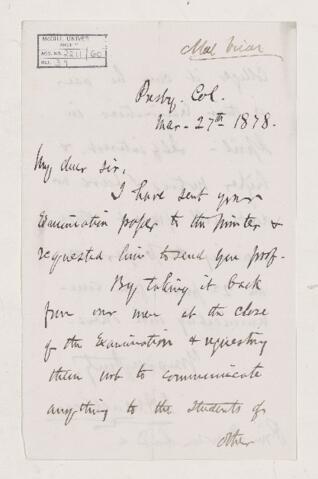 McGILL UNIVER
ACC. NO. 2211/60
REF. 39
Mac Vicar
Presby. Col.
Mar. 27th 1878.
My dear Sir,
I have sent your
Examination paper to the printer &
requested him to send you proof.
By taking it back
from our men at the close
of the Examination & requesting
them not to communicate
anything to the Students of
other